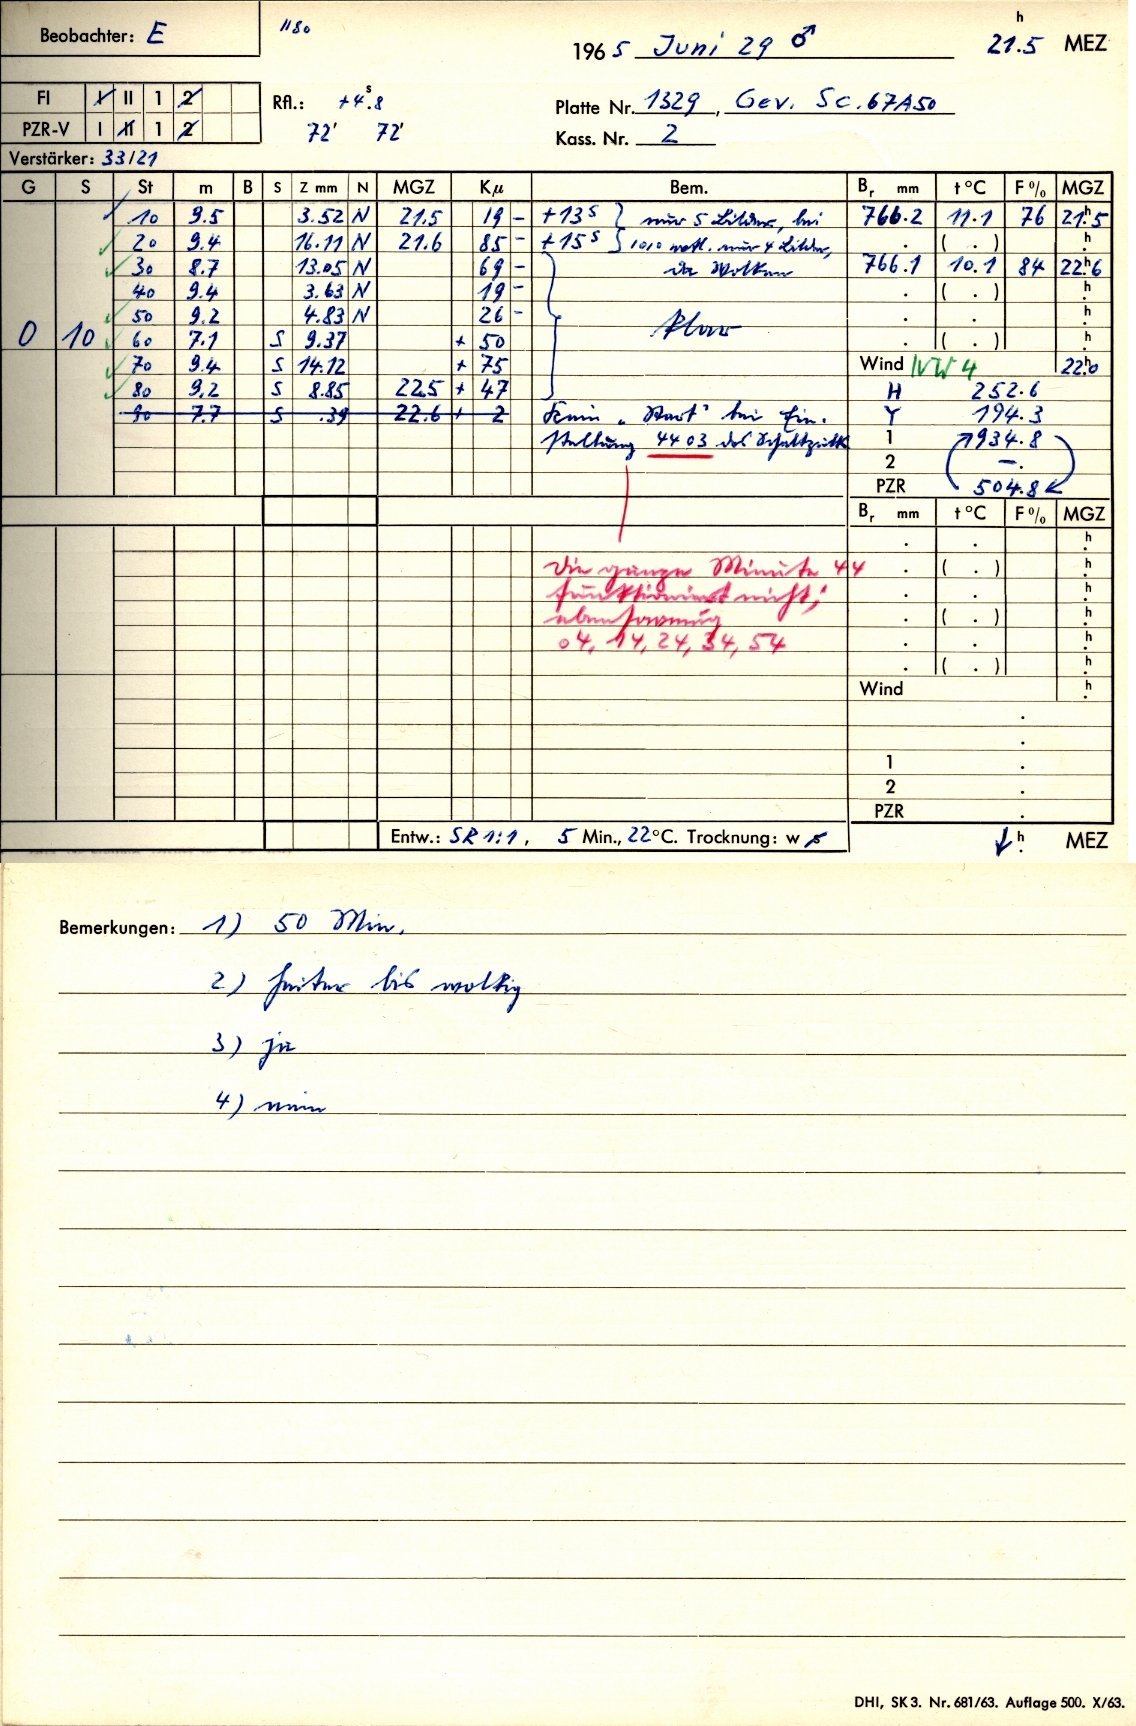 Beobachter: E
1180
1965 Juni 29 ♂ 21h.5 MEZ
FI I II 1 2
PZR-V I II 1 2
Rfl.: +4s.8
72' 72'
Platte Nr. 1329, Gev. Sc. 67A50
Kass. Nr. 2
Verstärker: 33/21
G S St m B S Z mm N MGZ Kμ Bem. Br mm t°C F% MGZ
10 9.5 3.52 N 21.5 19 - +13s } nur 5 Bilder, bei 766.2 11.1 76 21h.5
20 9.4 16.11 N 21.6 85 - +15s } 1010 nur 4 Bilder, . ( . ) h.
30 8.7 13.05 N 69 - da Wolken 766.1 10.1 84 22h.6
40 9.4 3.63 N 19 - . ( . ) h.
50 9.2 4.83 N 26 - . . h.
0 10 60 7.1 S 9.37 + 50 klar . ( . ) h.
70 9.4 S 14.12 + 75 Wind NW 4 22h.0
80 9.2 S 8.85 22.5 + 47 H 252.6
90 7.7 S .39 22.6 + 2 Kein „Start" bei Ein- Y 194.3
stellung 4403 des 1 934.8
2 —.
PZR 504.8
Br mm t°C F% MGZ
. . h.
Die ganze Minute 44 . ( . ) h.
funktioniert nicht; . . h.
ebensowenig . ( . ) h.
04, 14, 24, 34, 54 . . h.
. ( . ) h.
Wind h.
.
.
1 .
2 .
PZR .
Entw.: SR 1:1, 5 Min., 22°C. Trocknung: w h. MEZ
Bemerkungen: 1) 50 Min.
2) heiter bis wolkig
3) ja
4) nein
DHI, SK 3. Nr. 681/63. Auflage 500. X/63.